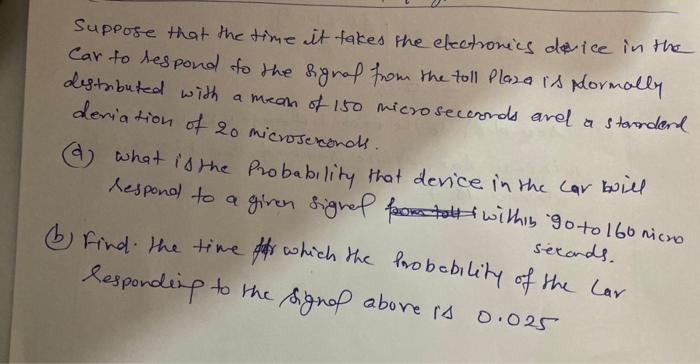 Suppose that the time it takes the electronics device in the
Car to respond to the signal from the toll Plaza is Normally
distributed with a mean of 150 microseconds and a standard
deviation of 20 microseconds.
(a) what is the Probability that device in the car will
respond to a given signal within 90 to 160 micro
seconds.
(b) Find. the time which the probability of the car
responding to the signal above is 0.025